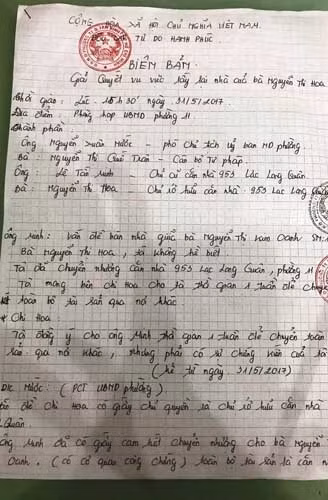 CỘNG HÒA XÃ HỘI CHỦ NGHĨA VIỆT NAM
TỰ DO HẠNH PHÚC
BIÊN BẢN
Giải Quyết vụ việc lấy lại nhà của bà Nguyễn Thị Hoa
Thời gian: Lúc 15h30' ngày 31/5/2017
Địa điểm: Phòng họp UBND phường 11
Thành phần
Ông Nguyễn Xuân Mước - phó Chủ tịch Uỷ ban ND phường
Bà: Nguyễn Thị Trân - Cán bộ Tư pháp
Ông: Lê Tấn Minh - Chủ cũ căn nhà 953 Lạc Long Quân
Bà: Nguyễn Thị Hoa - Chủ sở hữu căn nhà 953 Lạc Long Quân
Ông Minh: Vấn đề bán nhà giữa bà Nguyễn Thị Kim Oanh
Bà Nguyễn Thị Hoa, tôi không hề biết
Tôi đã Chuyển nhượng căn nhà 953 Lạc Long Quân, phường 11
Tôi mong bên chị Hoa cho tôi thời gian 1 tuần để chuyển
toàn bộ tài sản qua nơi khác
* Chị Hoa:
Tôi đồng ý cho ông Minh thời gian 1 tuần để chuyển toàn
sản qua nơi khác, nhưng phải có sự chứng kiến của
(kể từ ngày 31/5/2017)
Đ/c Mước: (PCT UBND phường)
đề Chị Hoa có giấy chủ quyền là chủ sở hữu căn nhà
Quân
Ông Minh đã có giấy cam kết chuyển nhượng cho bà Nguyễn
Oanh. (có cơ quan công chứng) toàn bộ tài sản là căn nhà